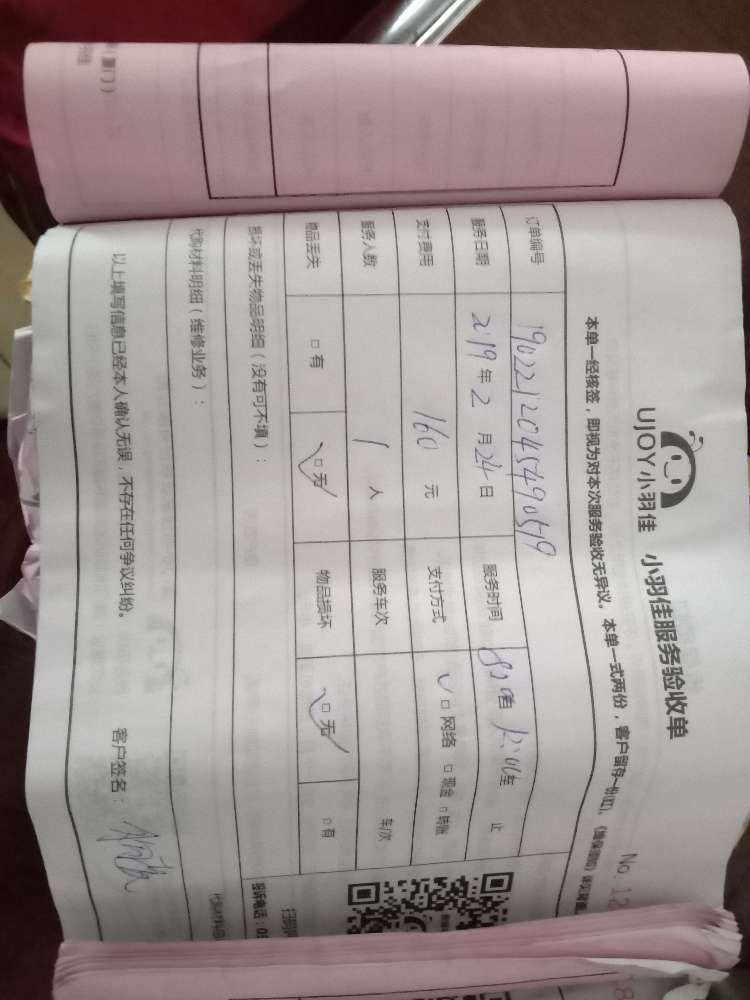 UJOY小羽佳 小羽佳服务验收单
No. 12
本单一经核签，即视为对本次服务验收无异议。本单一式两份，客户留存一份(红)，
订单编号 1902212045490519
服务日期 2019年2月24日 服务时间 止
支付费用 160元 支付方式 ✓□网络 □现金 □转账
服务人数 1人 服务车次 车/次
物品丢失 □有 ✓□无 物品损坏 ✓□无 □有
损坏或丢失物品明细（没有可不填）：
扫码
投诉电话：05
代购材料明细（维修业务）：
代购材料
以上填写信息已经本人确认无误，不存在任何争议纠纷。 客户签名：
（厦门）